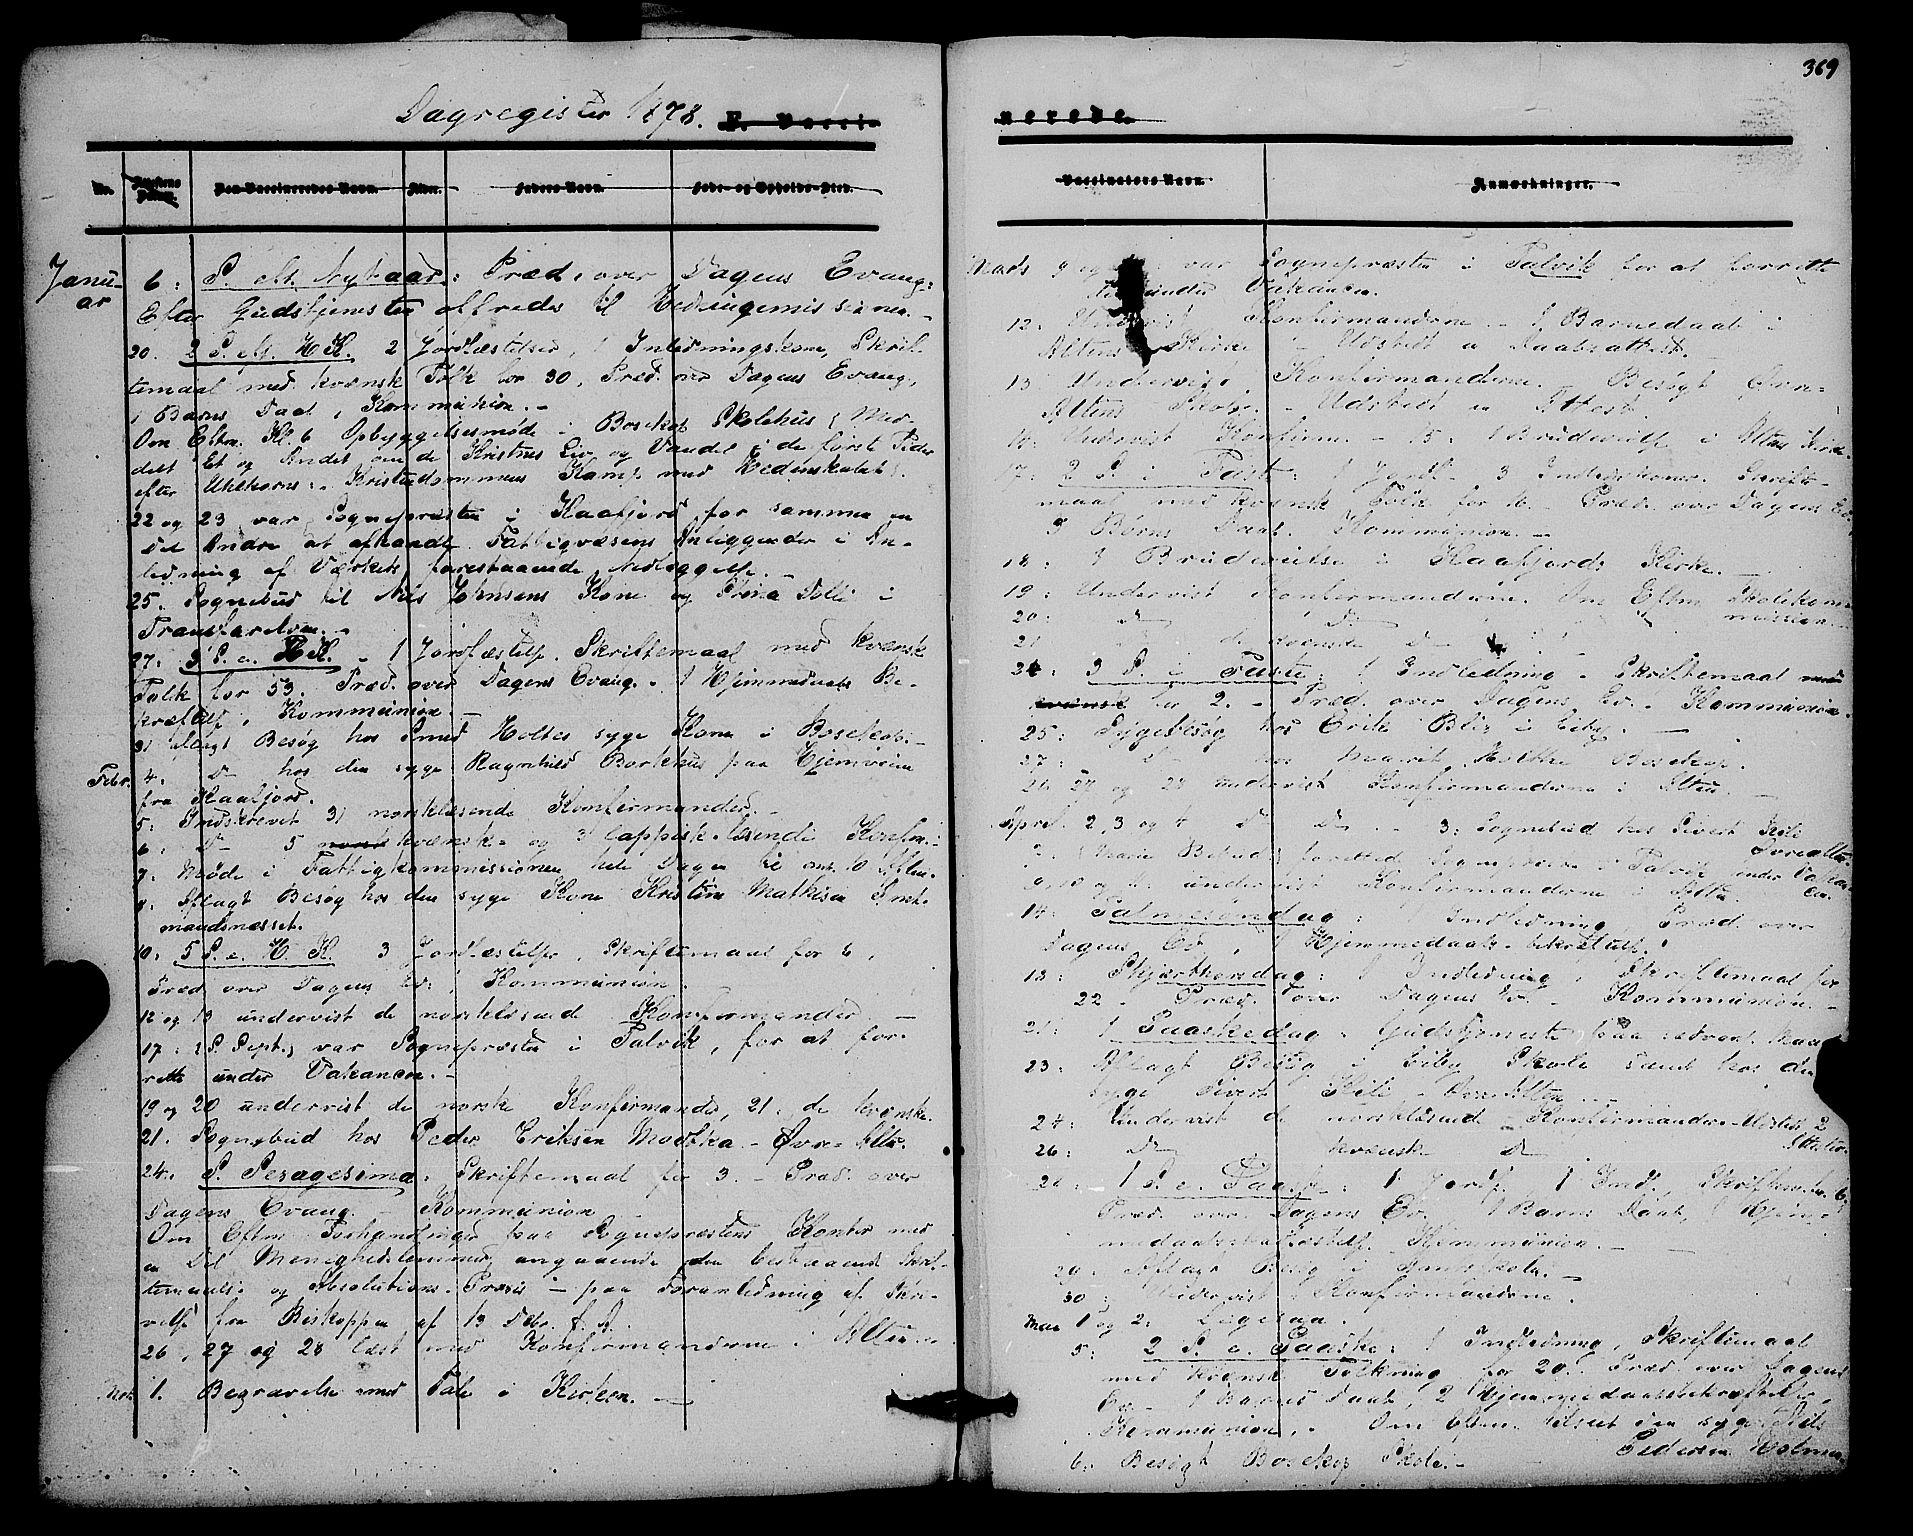 369
Dagregister 1878. F. Vacci-
nerede.
No. Den Vaccineredes Navn. Alder. Faders Navn. Føde- og Opholds-Sted.
Vaccinators Navn. Anmærkninger.
Janu-
ar
6: S. e. Nytaar: Præd. over Dagens Evang:
Efter Gudstjenesten offredes til Hedningemissionen.-
20. 2 S. e. H. K. 2 Jordfæstelser, 1 Inledningskone, Skrif-
temaal med kvænsk Tolk for 30, Præd. over Dagens Evang,
1 Barns Daab, Kommunion.-
Om Eftm. Kl. 6 Opbyggelsesmøde i Bosekop Skolehus (Med-
delt Et og Andet om de Kristnes Liv og Vandel i de første Tider
efter Uhlhorns: Kristendommens Kamp med Hedenskabet).
22 og 23 var Sognepræsten i Kaafjord for sammen en
Del Andre at afhandle Fattigvæsens Anliggender i An-
ledning af Værkets forestaaende Nedlæggelse.-
25. Sognebud til Nils Johnsens Kone og
Transfarelven.-
27: 3 S. e. H. K. - 1 Jordfæstelse. Skriftemaal med kvænsk
Tolk for 53. Præd. over Dagens Evang.- 1 Hjemmedaabs Be-
kræftelse, Kommunion.-
31 aflagt Besøg hos Smed Holtes syge Kone i Bosekop.-
Febr. 4. Do hos den syge Ragnhild Barkhus paa
fra Kaafjord.
5: Indskrevet 31 norsklæsende Konfirmander.-
6: Do 5 kvænsk- og 3 lappisk-læsende Konfirm:
7: Møde i Fattigkommissionen hele Dagen til om. 10 Aften.
8: Aflagt Besøg hos den syge Kone Kristine Mathisen
mandsnæsset.
10: 5 S. e. H. K. 3 Jordfæstelser, Skriftemaal for 6,
Præd. over Dagens Ev: Kommunion.
12 og 13 undervist de norsklæsende Konfirmander.-
17: (S. Sept.) var Sognepræsten i Talvik, for at for-
rette under Vakancen.-
19 og 20 undervist de norske Konfirmander, 21: de kvænske.
21. Sognebud hos Peder Eriksen - Øvre-Alten.
24. S. Sexagesima: Skriftemaal for 3.- Præd. over
Dagens Evang.- Kommunion
Om Eftm. Forhandlinger paa Sognepræstens Kontor med
en Del Menighedslemmer angaaende den bestaaende Skrif-
temaals- og Absolutions-Praxis - paa Foranledning af Skri-
velse fra Biskoppen af 13 Debr. f. A.
26, 27 og 28 læst med Konfirmanderne i Alten.-
1. Begravelse med Tale i Kirken.-
Marts 9 og var Sognepræsten i Talvik for at forrette
under Vakancen.
12: Undervist Konfirmanderne.- 1 Barnedaab i
Altens Kirke - Udstedt en Daabsattest.-
13 Undervist Konfirmanderne.- Besøgt
Altens Skole.- Udstedt en Attest.
Undervist Konfirm.- 15: 1 Brudevielse i Altens Kirke.
17: 2 S. i Fast: 1 Jordf. 3 Indledskoner. Skrifte-
maal med kvænsk Tolk for 16. Præd. over Dagens Ev.
3 Børns Daab. Kommunion.-
18: 1 Brudevielse i Kaafjords Kirke.-
19: Undervist Konfirmanderne. Om Eftm Skolekom-
mission.
20: Do Do
21 de kvænske Do
24: 3 S. i Faste: 1 Indledning. Skriftemaal
for 2.- Præd. over Dagens Ev.- Kommunion.
25: Sygebesøg hos Erik i Eiby.-
27: Do hos Marit Holthe Bosekop.
26 27 og 28 undervist Konfirmanderne i Alten.-
April 2, 3 og 4 Do Do.- 3: Sognebud hos Sivert
Øvrealten.
7: forrettede Sognepræsten i Talvik under Vakan-
cen.
undervist Konfirmanderne i Alten.
14: Palmesøndag: 1 Indledning. Præd. over
Dagens Ev, 1 Hjemmedaabs-bekræftelse.
18: Skjærthorsdag: 1 Indledning, Skriftemaal for
22.- Præd. over Dagens Ev.- Kommunion.-
21: 1 Paaskedag: Gudstjeneste paa sædvanl. Maa
23: Aflagt Besøg i Eiby Skole samt hos den
syge Sivert - Øvre-Alten.-
24: Undervist de norsklæsende Konfirmander.- Udstedt 2
Attester.
26: Do kvænsk- Do
28: 1 S. e. Paaske: 1 Jordf, 1 Indl. Skriftem. for 6.
Præd. over Dagens Ev. 1 Barns Daab, 1 Hjem-
medaabsbekræftelse. Kommunion.-
29: Aflagt Besøg i Skole.-
30: Undervist Konfirmanderne.
Mai 1 og 2:
5: 2 S. e. Paaske: 1 Indledning, Skriftemaal
med kvænsk Tolkning for 20. Præd. over Dagens
Ev.- 1 Barns Daab, 2 Hjemmedaabsbekræftelser.
Kommunion.- Om Eftm. tilseet den syge Nils
Pedersen
6: Besøgt Bosekop Skole.-